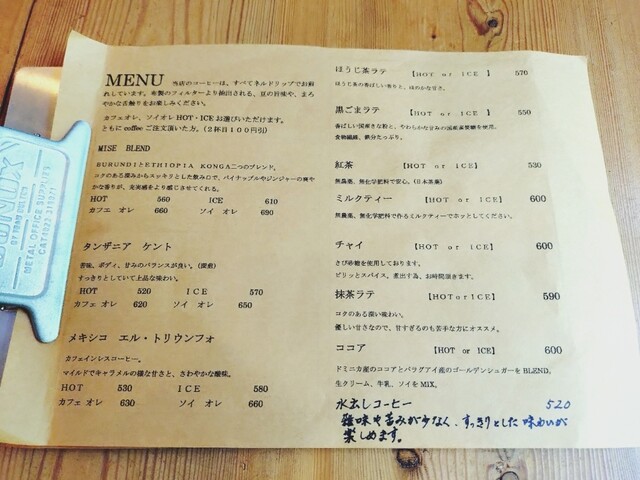 MENU 当店のコーヒーは、すべてネルドリップでお淹
れしています。布製のフィルターより抽出される、豆の旨味や、まろ
やかな舌触りをお楽しみください。
カフェオレ、ソイオレ HOT・ICE お選びいただけます。
ともに coffee ご注文頂いた方。(2杯目100円引)
MISE BLEND
BURUNDIとETHIOPIA KONGA二つのブレンド。
コクのある深みからスッキリとした飲み口で、パイナップルやジンジャーの爽や
かな香りが、充実感をより感じさせてくれる。
HOT 560 ICE 610
カフエ オレ 660 ソイ オレ 690
タンザニア ケント
苦味、ボディ、甘みのバランスが良い。(深煎)
すっきりとしていて上品な味わい。
HOT 520 ICE 570
カフェ オレ 620 ソイ オレ 650
メキシコ エル・トリウンフォ
カフェインレスコーヒー。
マイルドでキャラメルの様な甘さと、さわやかな酸味。
HOT 530 ICE 580
カフェ オレ 630 ソイ オレ 660
ほうじ茶ラテ 【HOT or ICE 】 570
ほうじ茶の香ばしい香りと、ほのかな甘さ。
黒ごまラテ 【HOT or ICE 】 550
香ばしい国産きな粉と、やわらかな甘みの国産素焚糖を使用。
食物繊維、鉄分たっぷり。
紅茶 【HOT or ICE】 530
無農薬、無化学肥料で安心。(日本茶葉)
ミルクティー 【HOT or ICE】 600
無農薬、無化学肥料で作るミルクティーでホッとしてください。
チャイ 【HOT or ICE】 600
きび砂糖を使用しております。
ピリッとスパイス、煮出す為、お時間頂きます。
抹茶ラテ 【HOTorICE】 590
コクのある深い味わい。
優しい甘さなので、甘すぎるのも苦手な方にオススメ。
ココア 【HOT or ICE】 600
ドミニカ産のココアとパラグアイ産のゴールデンシュガーをBLEND。
生クリーム、牛乳、ソイをMIX。
水出しコーヒー 520
雑味や苦みが少なく、すっきりとした味わいが
楽しめます。
METAL OFFICE SUPPLIES